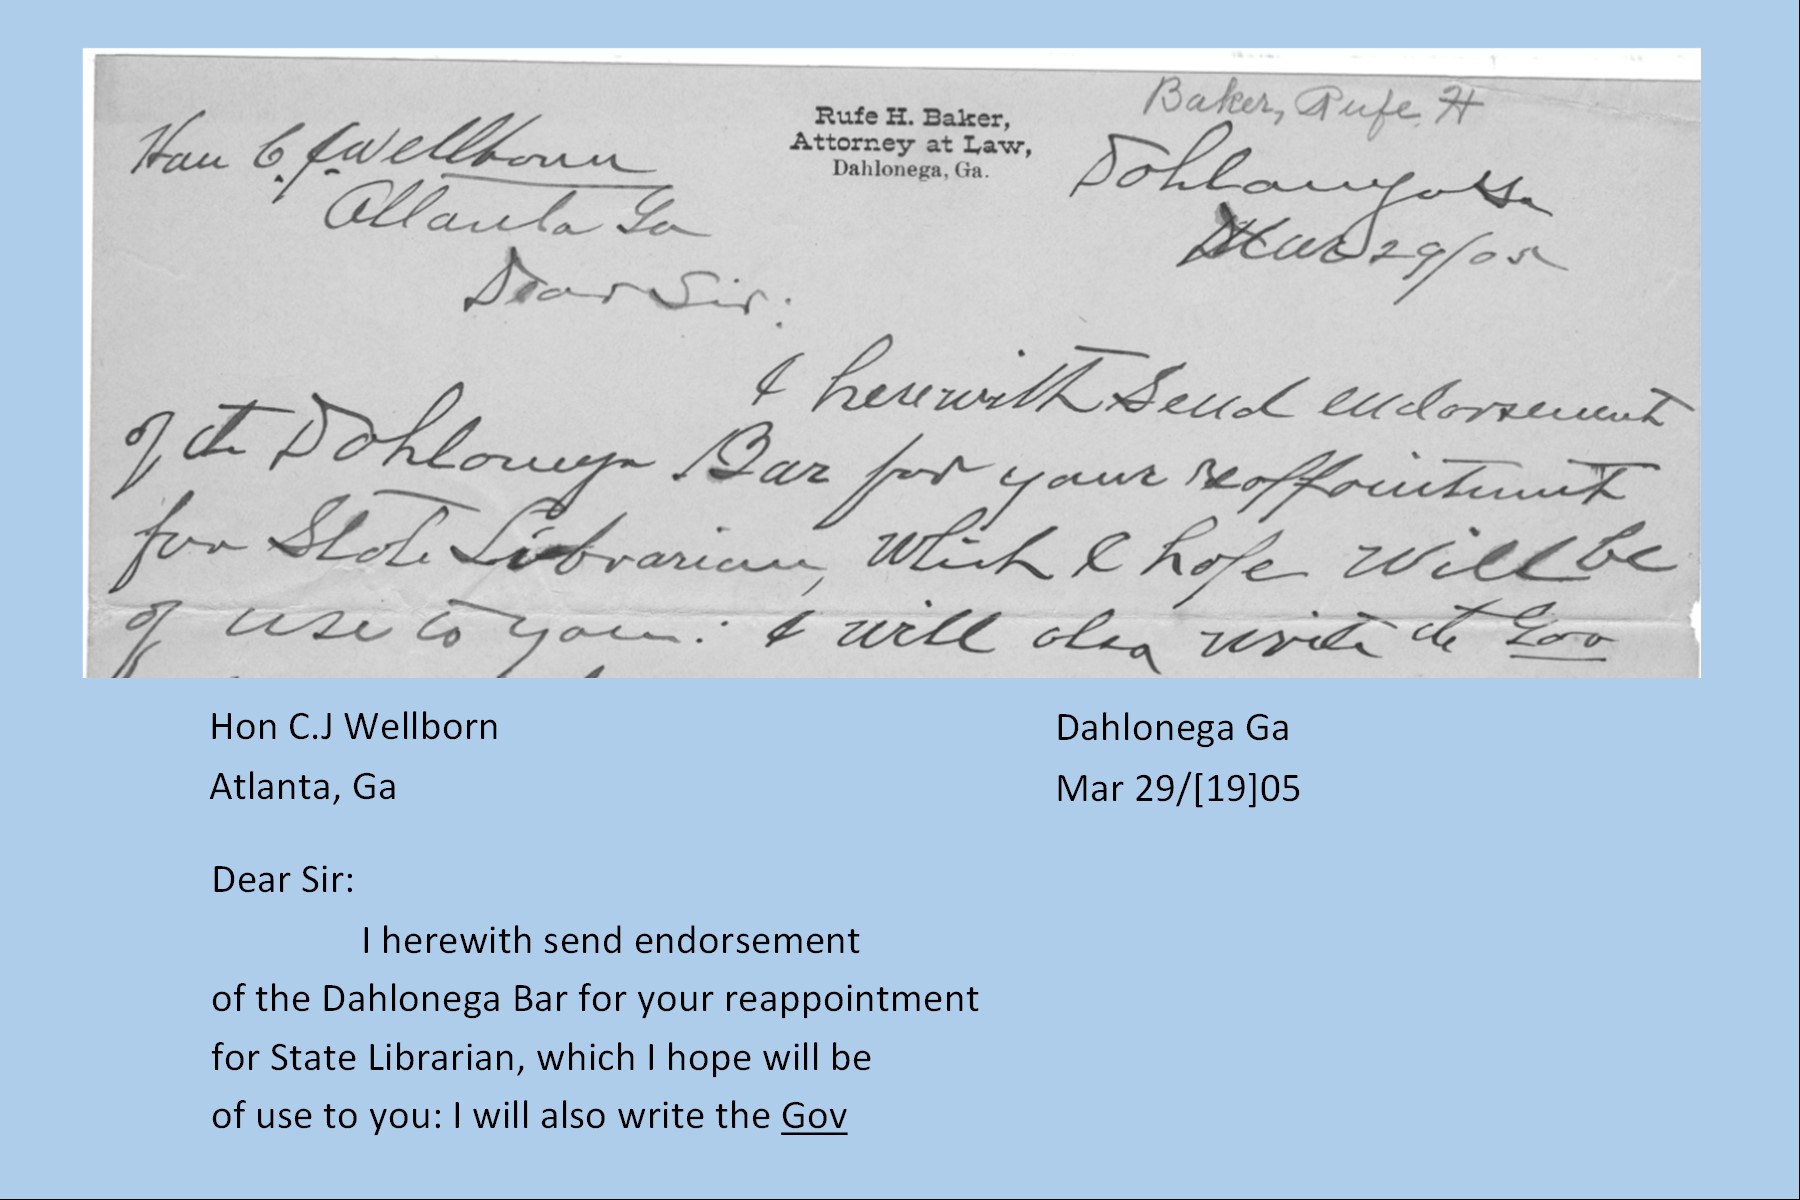 Baker, Rufe H
Rufe H. Baker,
Attorney at Law,
Dahlonega, Ga.
Hon C. J Wellborn
Atlanta Ga
Dahlonega Ga
Mar 29/05
Dear Sir:
I herewith send endorsement
of the Dahlonega Bar for your reappointment
for State Librarian, which I hope will be
of use to you: I will also write the Gov
Hon C.J Wellborn
Atlanta, Ga
Dahlonega Ga
Mar 29/[19]05
Dear Sir:
I herewith send endorsement
of the Dahlonega Bar for your reappointment
for State Librarian, which I hope will be
of use to you: I will also write the Gov